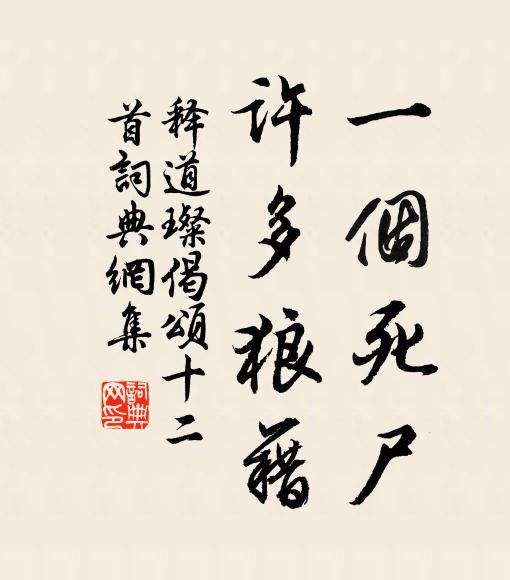 一個死尸
許多狼藉
释道璨偈頌十二
首詞典網集
詞典
网印